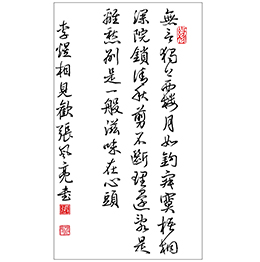 無言獨上西樓月如鈎寂寞梧桐
深院鎖清秋剪不斷理還亂是
離愁別是一般滋味在心頭
李煜相見歡張風亮書